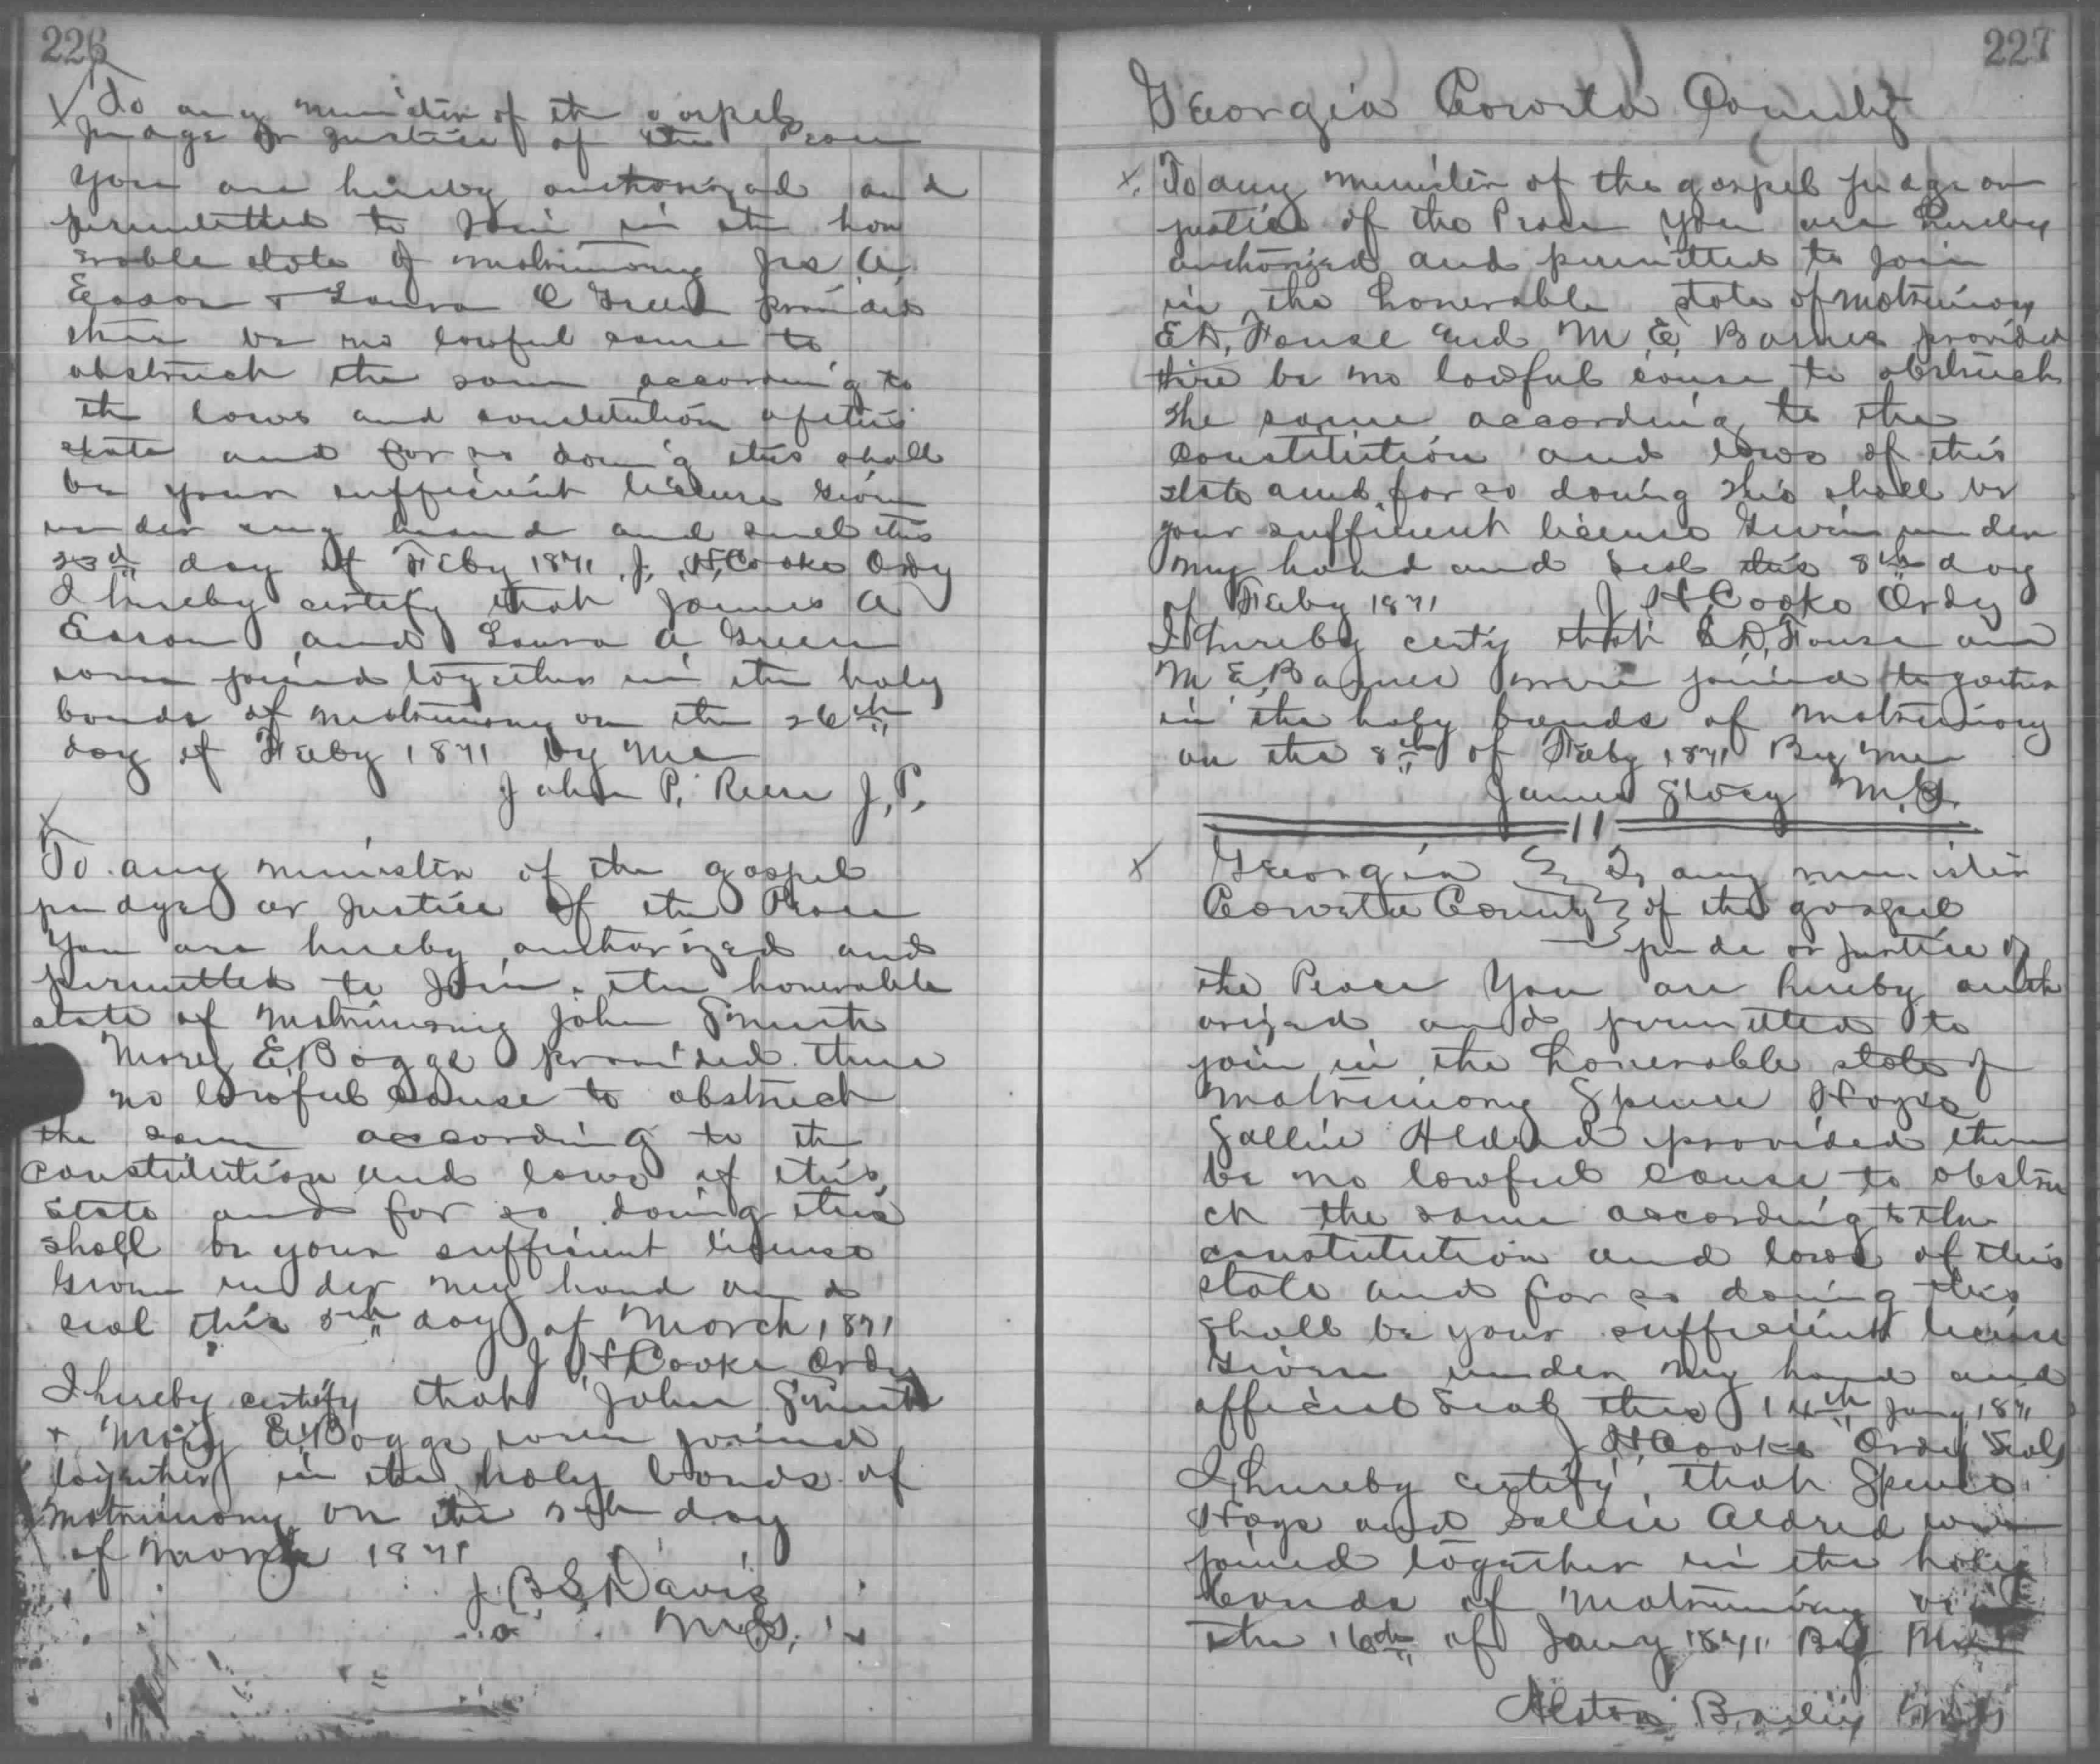 226
To any minister of the gospel
Judge or Justice of the Peace
You are hereby authorized and
permitted to Join in the hon
erable state of matrimony Jas A
Eason + Laura C Green provided
there be no lawful cause to
obstruct the same according to
the laws and constitution of this
state and for so doing this shall
be your sufficient license Given
under my hand and seal this
23d day of Feby 1871 J. H. Cooke Ordy
I hereby certify that James A
Eason and Laura A Green
were joined together in the holy
bonds of matrimony on the 26th
day of Feby 1871 by me
John P. Reese J.P.
To any minister of the gospel
judge or Justice of the Peace
You are hereby authorized and
permitted to Join the honerable
state of matrimony John Smith
Mary E. Boggs provided there
no lawful cause to obstruct
the same according to the
constitution and laws of this
state and for so doing this
shall be your sufficient license
Given under my hand and
seal this 5th day of March 1871
J H Cooke Ordy
I hereby certify that John Smith
+ Mary E. Boggs were joined
together in the holy bonds of
matrimony on the 5th day
of March 1871
J. B. S. Davis
M.G.
227
Georgia Coweta County
To any minister of the gospel judge or
justice of the Peace You are hereby
authorized and permitted to join
in the honerable state of matrimony
E D, House and M E, Barnes provided
there be no lawful cause to obstruct
the same according to the
constitution and laws of this
state and for so doing this shall be
your sufficient license Given under
my hand and seal this 8th day
of Feby 1871 J H Cooke Ordy
I hereby certy that E D, House and
M E, Barnes were joined together
in the holy bonds of matrimony
on the 8th of Feby 1871 By me
James Stacy M.G.
Georgia To any minister
Coweta County of the gospel
jude or justice of
the Peace You are hereby auth
orized and permitted to
join in the honerable state of
matrimony Spence Hoges
Sallie Aldred provided there
be no lawful cause to obstru
ct the same according to the
constitution and laws of this
state and for so doing this
shall be your sufficient license
Given under my hand and
official seal this 14th Jany 1871
J H Cooke Ordy Seal
I hereby certify that Spence
Hoge and Sallie Aldred were
joined together in the holy
bonds of matrimony on
the 16th of Jany 1871 By Me
Alston Bailey